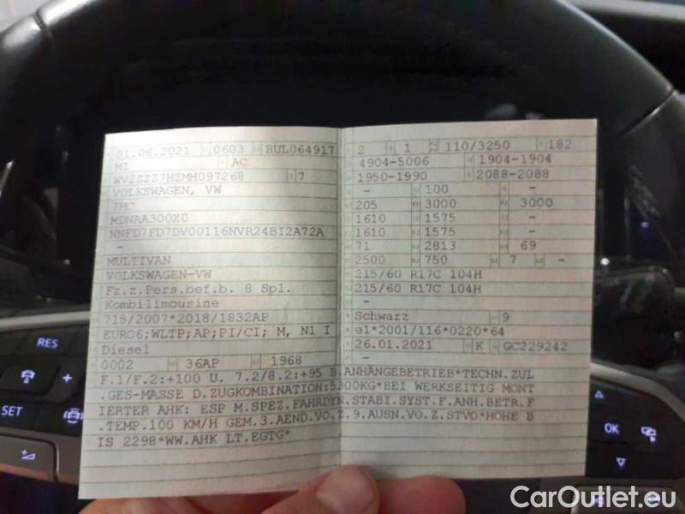 01.06.2021 0603 BUL064917
M1 AC
7
VOLKSWAGEN, VW
7HC
MDNAA300X0
NNFD7FD7DV00I16NVR24BI2A72A
-
MULTIVAN
VOLKSWAGEN-VW
Fz.z.Pers.bef.b. 8 Spl.
Kombilimousine
715/2007*2018/1832AP
EURO6;WLTP;AP;PI/CI; M, N1 I
Diesel
0002 36AP 1968
2 1 110/3250 182
4904-5006 1904-1904
1950-1990 2088-2088
- 100 -
205 3000 3000
1610 1575
1610 1575
71 2813 69
2500 750 7 -
215/60 R17C 104H
215/60 R17C 104H
-
Schwarz 9
e1*2001/116*0220*64
26.01.2021 K GC229242
-
F.1/F.2:+100 U. 7.2/8.2:+95 B.ANHÄNGEBETRIEB*TECHN.ZUL
.GES-MASSE D.ZUGKOMBINATION:5300KG*BEI WERKSEITIG MONT
IERTER AHK: ESP M.SPEZ.FAHRDYN.STABI.SYST.F.ANH.BETR.F
.TEMP.100 KM/H GEM.3.AEND.VO.Z.9.AUSN.VO.Z.STVO*HÖHE B
IS 2298*WW.AHK LT.EGTG*
RES
SET
OK
CarOutlet.eu